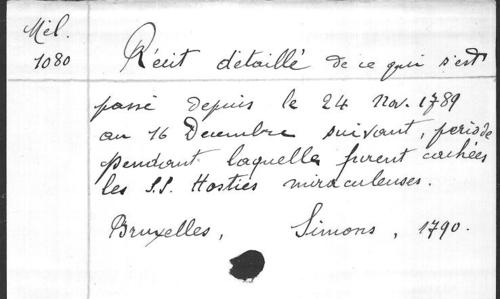 Mél.
1080
Récit détaillé de ce qui s'est
passé depuis le 24 Nov. 1789
au 16 Decembre suivant, periode
pendant laquelle furent cachées
les S.S. Hosties miraculeuses.
Bruxelles, Simons, 1790.